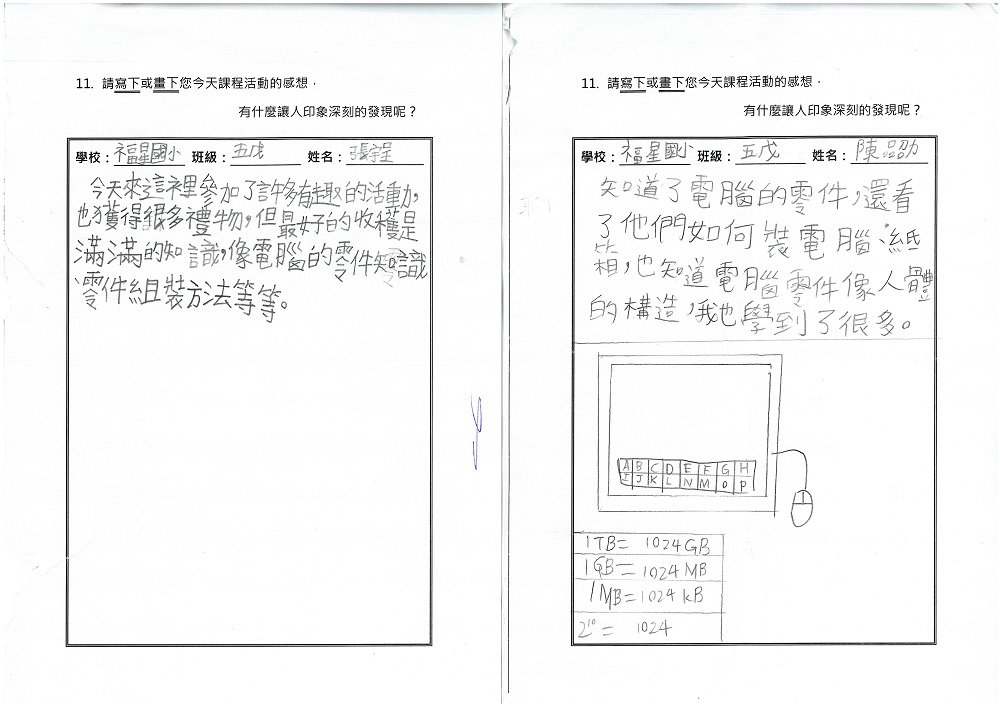 11. 請寫下或畫下您今天課程活動的感想，
有什麼讓人印象深刻的發現呢？
學校：福星國小 班級：五戊 姓名：張宇呈
今天來這裡參加了許多有趣的活動，
也獲得很多禮物，但最好的收穫是
滿滿的知識，像電腦的零件知識
零件組裝方法等等。
11. 請寫下或畫下您今天課程活動的感想，
有什麼讓人印象深刻的發現呢？
學校：福星國小 班級：五戊 姓名：陳品劭
知道了電腦的零件，還看
了他們如何裝電腦紙
箱，也知道電腦零件像人體
的構造，我也學到了很多。
A B C D E F G H
I J K L N M O P
1TB= 1024GB
1GB=1024MB
1MB=1024kB
2¹⁰= 1024